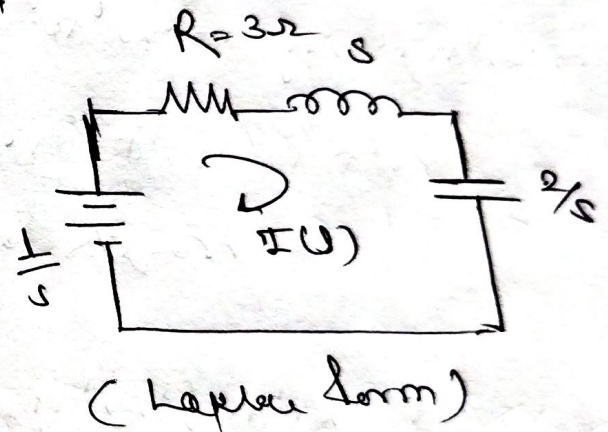 R=3Ω
s
2/s
I(s)
1/s
(Laplace form)